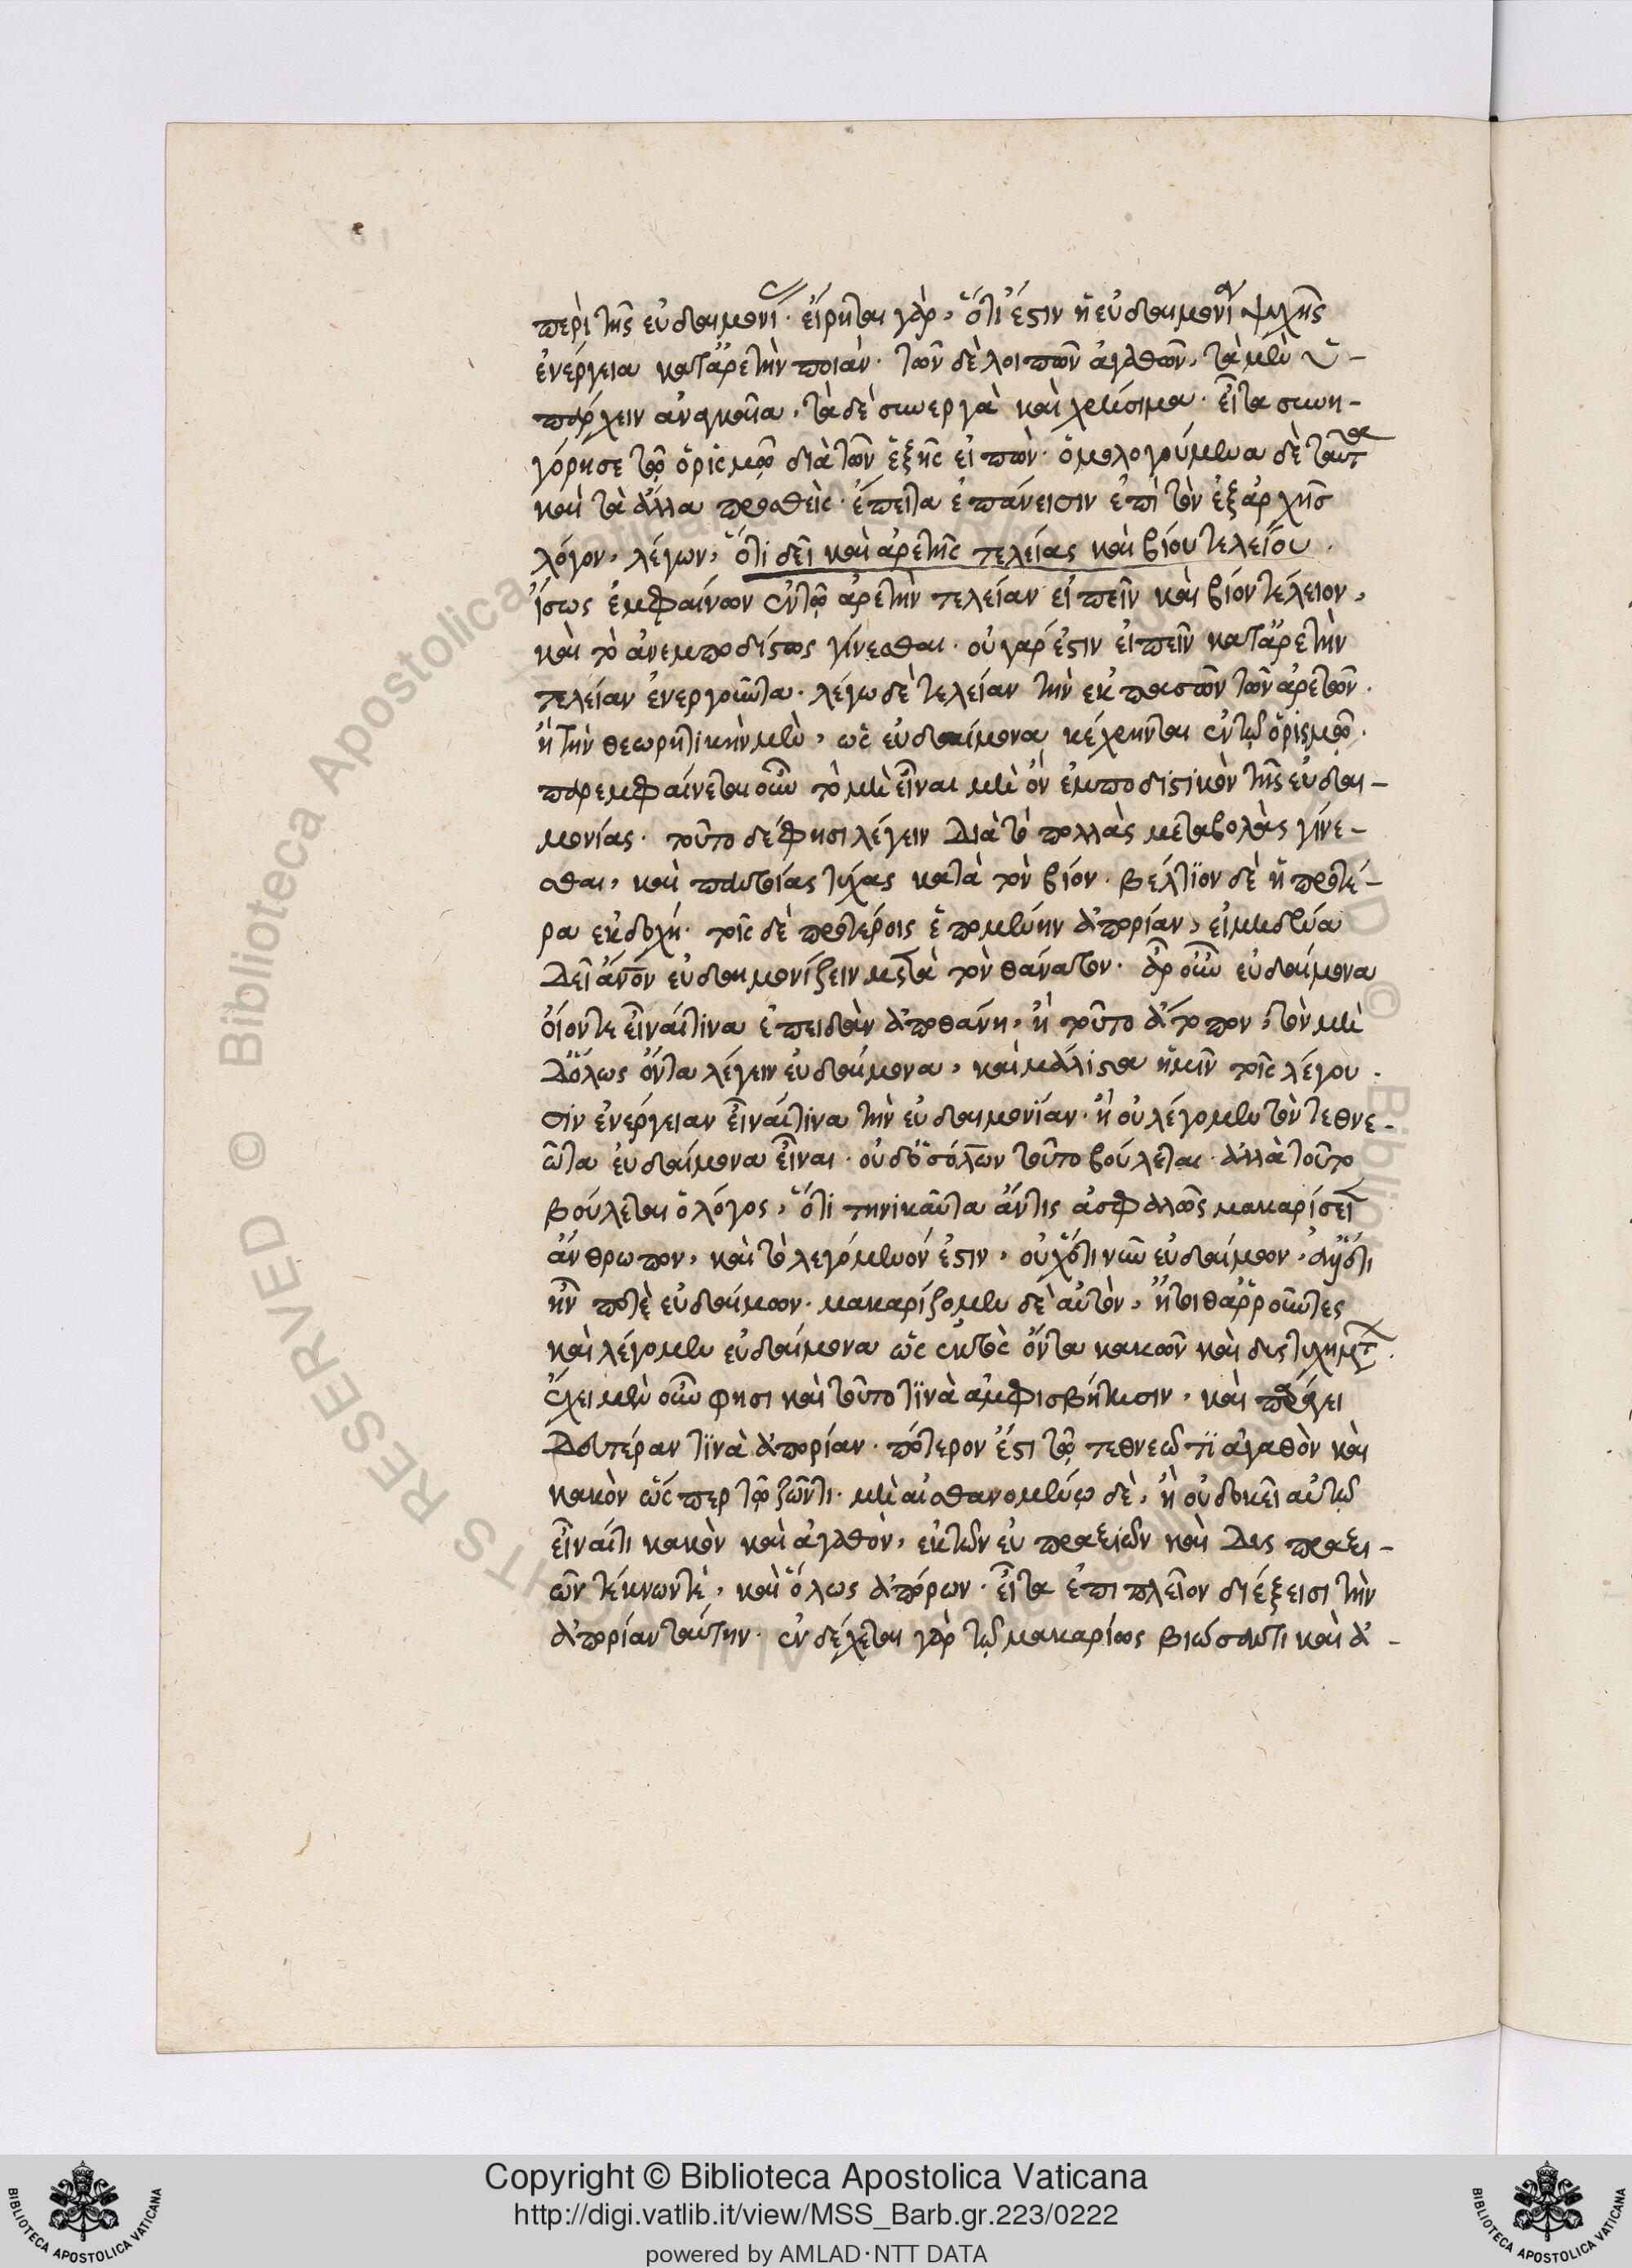 περὶ τῆς εὐδαιμονί· εἴρηται γὰρ, ὅτι ἐστιν ἡ εὐδαιμονία ψυχῆς
ἐνέργεια κατ' ἀρετὴν ποιὰν· τῶν δὲ λοιπῶν ἀγαθῶν, τὰ μὲν ὑ-
πάρχειν ἀναγκαῖα, τὰ δὲ συνεργὰ καὶ χρήσιμα· εἶτα συνη-
γόρησε τῷ ὁρισμῷ διὰ τῶν ἑξῆς εἰπὼν· ὁμολογούμενα δὲ ταῦτ
καὶ τὰ ἄλλα προσθεὶς· ἔπειτα ἐπάνεισιν ἐπὶ τὸν ἐξαρχῆς
λόγον, λέγων, ὅτι δεῖ καὶ ἀρετῆς τελείας καὶ βίου τελείου.
ἴσως ἐμφαίνων ἐν τῷ ἀρετὴν τελείαν εἰπεῖν καὶ βίον τέλειον,
καὶ τὸ ἀνεμποδίστως γίνεσθαι· οὐ γάρ ἐστιν εἰπεῖν κατ' ἀρετὴν
τελείαν ἐνεργοῦντα· λέγω δὲ τελείαν τὴν ἐκ πασῶν τῶν ἀρετῶν.
ἢ τὴν θεωρητικὴν μὲν, ὡς εὐδαίμονα κέχρηνται ἐν τῷ ὁρισμῷ.
παρεμφαίνεται οὖν τὸ μὴ εἶναι μὴ ὂν ἐμποδιστικὸν τῆς εὐδαι-
μονίας· τοῦτο δέ φησι λέγειν διὰ τὸ πολλὰς μεταβολὰς γίνε-
σθαι, καὶ παντοίας τύχας κατὰ τὸν βίον· βέλτιον δὲ ἡ προτέ-
ρα ἐκδοχή· τοῖς δὲ προτέροις ἑπομένην ἀπορίαν, εἰ μηδένα
δεῖ ἀνον εὐδαιμονίζειν μετὰ τὸν θάνατον· ἆρ οὖν εὐδαίμονα
οἷόν τε εἶναί τινα ἐπειδὰν ἀποθάνῃ, ἢ τοῦτο ἄτοπον, τὸν μὴ
δ' ὅλως ὄντα λέγειν εὐδαίμονα, καὶ μάλιστα ἡμῖν τοῖς λέγου-
σιν ἐνέργειαν εἶναί τινα τὴν εὐδαιμονίαν· ἢ οὐ λέγομεν τὸν τεθνε-
ῶτα εὐδαίμονα εἶναι· οὐδ' ὁ σόλων τοῦτο βούλεται· ἀλλὰ τοῦτο
βούλεται ὁ λόγος, ὅτι τηνικαῦτα ἄν τις ἀσφαλῶς μακαρίσει
ἄνθρωπον, καὶ τὸ λεγόμενόν ἐστιν, οὐχ ὅτι νῦν εὐδαίμων, ἀλλ' ὅτι
ἦν ποτὲ εὐδαίμων· μακαρίζομεν δὲ αὐτὸν, ἤτοι θαρροῦντες
καὶ λέγομεν εὐδαίμονα ὡς ἐκτὸς ὄντα κακῶν καὶ δυστυχημτ.
ἔχει μὲν οὖν φησι καὶ τοῦτο τινὰ ἀμφισβήτησιν, καὶ προάγει
δευτέραν τινὰ ἀπορίαν· πότερον ἔστι τῷ τεθνεῶτι ἀγαθὸν καὶ
κακὸν ὥς περ τῷ ζῶντι· μὴ αἰσθανομένῳ δὲ, ἢ οὐ δοκεῖ αὐτῷ
εἶναί τι κακὸν καὶ ἀγαθὸν, ἐκ τῶν εὐπραξιῶν καὶ δυσπραξι-
ῶν τέκνων τὲ, καὶ ὅλως ἀπόρων· εἶτα ἐπι πλεῖον διέξεισι τὴν
ἀπορίαν ταύτην· ἐνδέχεται γὰρ τῷ μακαρίως βιώσαντι καὶ ἀ-
Copyright © Biblioteca Apostolica Vaticana
http://digi.vatlib.it/view/MSS_Barb.gr.223/0222
powered by AMLAD·NTT DATA